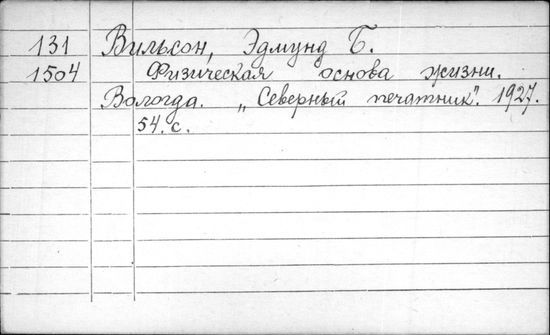 131 Вильсон, Эдмунд Б.
1504 Физическая основа жизни.
Вологда. „Северный печатник". 1927.
54. с.